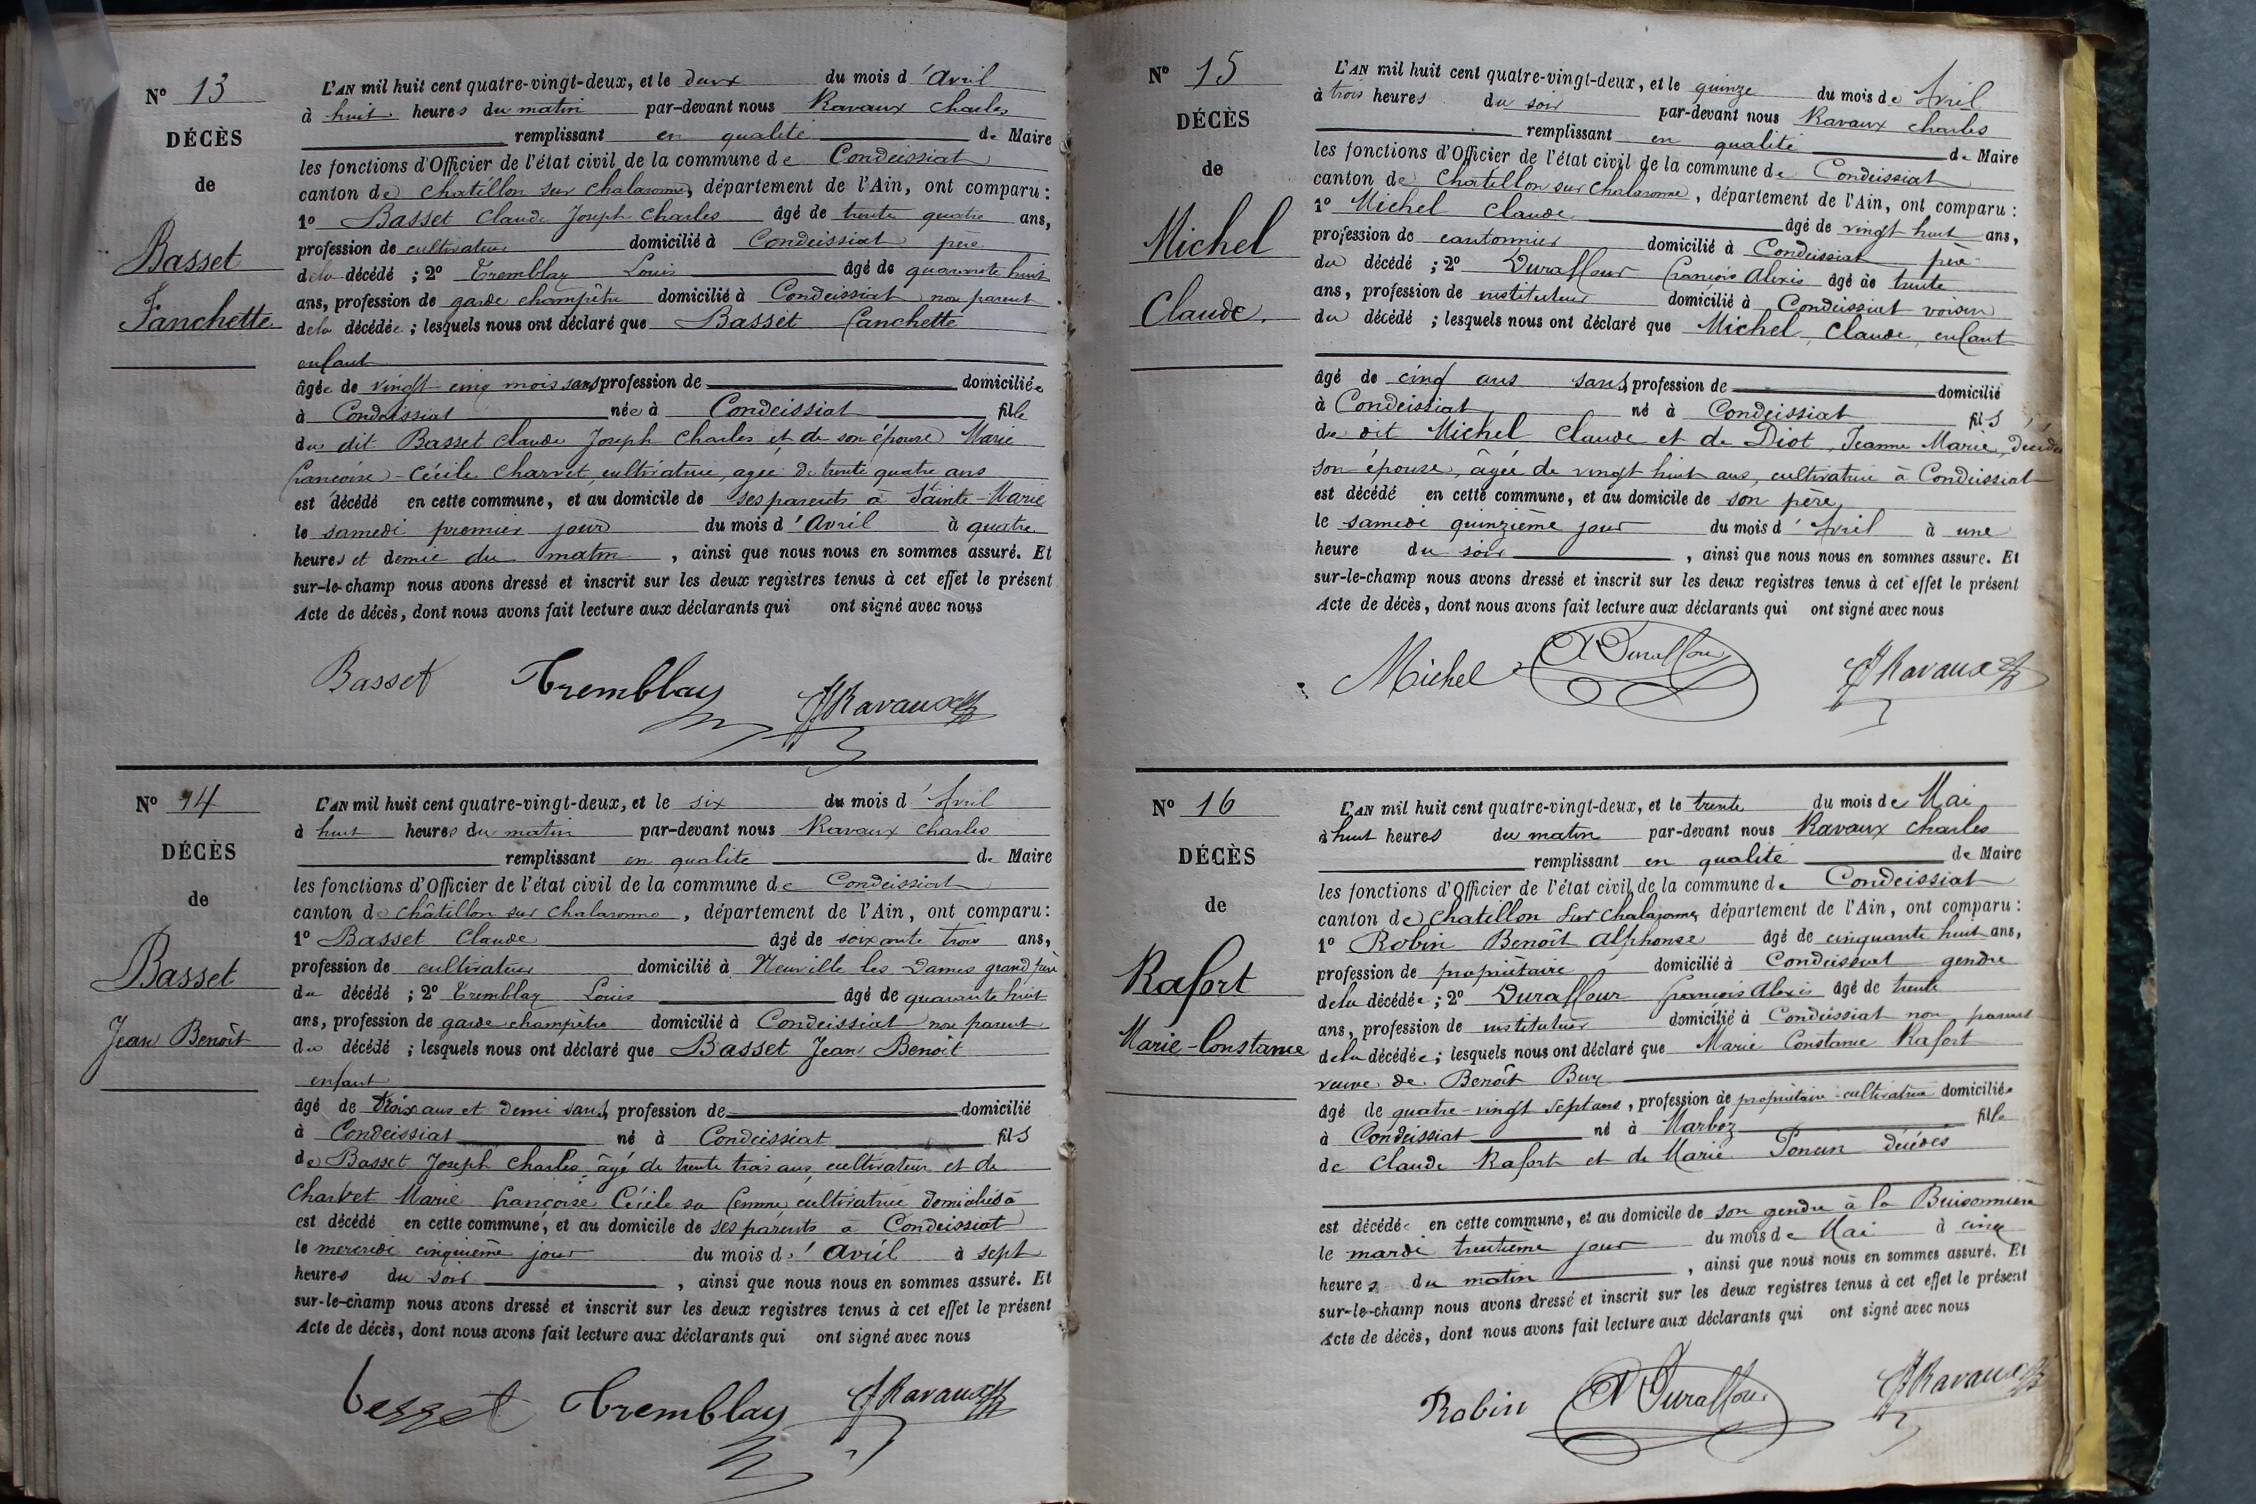 N° 13
DÉCÈS
de
Basset
Fanchette
L'AN mil huit cent quatre-vingt-deux, et le deux du mois d'Avril
à huit heures du matin par-devant nous Ravaux Charles
remplissant en qualité de Maire
les fonctions d'Officier de l'état civil de la commune de Condeissiat
canton de Chatillon sur Chalaronne, département de l'Ain, ont comparu :
1° Basset Claude Joseph Charles âgé de trente quatre ans,
profession de cultivateur domicilié à Condeissiat père
dela décédé ; 2° Tremblay Louis âgé de quarante huit
ans, profession de garde champêtre domicilié à Condeissiat non parent
dela décédée ; lesquels nous ont déclaré que Basset Fanchette
enfant
âgée de vingt cinq mois sans profession de domiciliée
à Condeissiat née à Condeissiat fille
du dit Basset Claude Joseph Charles et de son épouse Marie
françoise-Cécile Charvet, cultivatrice, agée de trente quatre ans
est décédé en cette commune, et au domicile de ses parents à Sainte-Marie
le samedi premier jour du mois d'Avril à quatre
heures et demie du matin, ainsi que nous nous en sommes assuré. Et
sur-le-champ nous avons dressé et inscrit sur les deux registres tenus à cet effet le présent
Acte de décès, dont nous avons fait lecture aux déclarants qui ont signé avec nous
Basset Tremblay Ravaux
N° 14
DÉCÈS
de
Basset
Jean Benoît
L'AN mil huit cent quatre-vingt-deux, et le six du mois d'Avril
à huit heures du matin par-devant nous Ravaux Charles
remplissant en qualité de Maire
les fonctions d'Officier de l'état civil de la commune de Condeissiat
canton de Châtillon sur Chalaronne, département de l'Ain, ont comparu :
1° Basset Claude âgé de soixante trois ans,
profession de cultivateur domicilié à Neuville les Dames grand père
du décédé ; 2° Tremblay Louis âgé de quarante huit
ans, profession de garde champêtre domicilié à Condeissiat non parent
du décédé ; lesquels nous ont déclaré que Basset Jean Benoît
enfant
âgé de trois ans et demi sans profession de domicilié
à Condeissiat né à Condeissiat fils
de Basset Joseph Charles âgé de trente trois ans cultivateur et de
Charvet Marie françoise Cécile sa femme cultivatrice domiciliés à
est décédé en cette commune, et au domicile de ses parents à Condeissiat
le mercredi cinquième jour du mois d'Avril à sept
heures du soir, ainsi que nous nous en sommes assuré. Et
sur-le-champ nous avons dressé et inscrit sur les deux registres tenus à cet effet le présent
Acte de décès, dont nous avons fait lecture aux déclarants qui ont signé avec nous
besset Tremblay Ravaux
N° 15
DÉCÈS
de
Michel
Claude.
L'AN mil huit cent quatre-vingt-deux, et le quinze du mois de Avril
à trois heures du soir par-devant nous Ravaux Charles
remplissant en qualité de Maire
les fonctions d'Officier de l'état civil de la commune de Condeissiat
canton de Chatillon sur Chalaronne, département de l'Ain, ont comparu :
1° Michel Claude âgé de vingt huit ans,
profession de cantonnier domicilié à Condeissiat père
du décédé ; 2° Duraffour françois Alexis âgé de trente
ans, profession de instituteur domicilié à Condeissiat voisin
du décédé ; lesquels nous ont déclaré que Michel, Claude, enfant
âgé de cinq ans sans profession de domicilié
à Condeissiat né à Condeissiat fils
du dit Michel Claude et de Diot, Jeanne Marie,
son épouse, âgée de vingt huit ans, cultivatrice à Condeissiat
est décédé en cette commune, et au domicile de son père,
le samedi quinzième jour du mois d'Avril à une
heure du soir, ainsi que nous nous en sommes assuré. Et
sur-le-champ nous avons dressé et inscrit sur les deux registres tenus à cet effet le présent
Acte de décès, dont nous avons fait lecture aux déclarants qui ont signé avec nous
Michel A Duraffour Ravaux
N° 16
DÉCÈS
de
Rafort
Marie-Constance
L'AN mil huit cent quatre-vingt-deux, et le trente du mois de Mai
à huit heures du matin par-devant nous Ravaux Charles
remplissant en qualité de Maire
les fonctions d'Officier de l'état civil de la commune de Condeissiat
canton de Chatillon sur Chalaronne, département de l'Ain, ont comparu :
1° Robin Benoît Alphonse âgé de cinquante huit ans,
profession de propriétaire domicilié à Condeissiat gendre
dela décédée ; 2° Duraffour françois Alexis âgé de trente
ans, profession de instituteur domicilié à Condeissiat non parent
dela décédée ; lesquels nous ont déclaré que Marie Constance Rafort
veuve de Benoît Bux
âgé de quatre-vingt sept ans, profession de propriétaire-cultivatrice domiciliée
à Condeissiat né à Marboz fille
de Claude Rafort et de Marie Poncin décédés
est décédée en cette commune, et au domicile de son gendre à la Buisonnière
le mardi trentième jour du mois de Mai à cinq
heures du matin, ainsi que nous nous en sommes assuré. Et
sur-le-champ nous avons dressé et inscrit sur les deux registres tenus à cet effet le présent
Acte de décès, dont nous avons fait lecture aux déclarants qui ont signé avec nous
Robin A Duraffour Ravaux